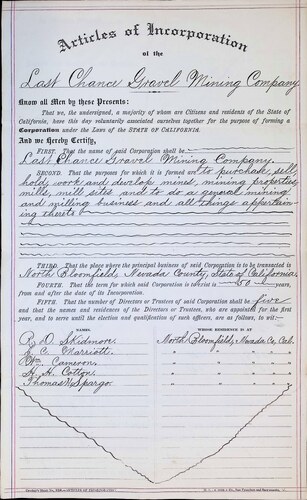 Articles of Incorporation
of the
Last Chance Gravel Mining Company.
Know all Men by these Presents:
That we, the undersigned, a majority of whom are Citizens and residents of the State of
California, have this day voluntarily associated ourselves together for the purpose of forming a
Corporation under the Laws of the STATE OF CALIFORNIA.
And we Hereby Certify,
FIRST. That the name of said Corporation shall be
Last Chance Gravel Mining Company.
SECOND. That the purposes for which it is formed are to purchase, sell,
hold, work and develop mines, mining properties,
mills, mill sites and to do a general mining
and milling business and all things appertain
ing thereto
THIRD. That the place where the principal business of said Corporation is to be transacted is
North Bloomfield, Nevada County, State of California.
FOURTH. That the term for which said Corporation is to exist is 50 years,
from and after the date of its Incorporation.
FIFTH. That the number of Directors or Trustees of said Corporation shall be five
and that the names and residences of the Directors or Trustees, who are appointed for the first
year, and to serve until the election and qualification of such officers, are as follows, to wit:
NAMES. WHOSE RESIDENCE IS AT
R. D. Skidmore, North Bloomfield, Nevada Co, Cal.
E. C. Marriott, " " "
Wm Cameron, " " "
H. H. Cotton, " " "
Thomas W. Spargo. " " "